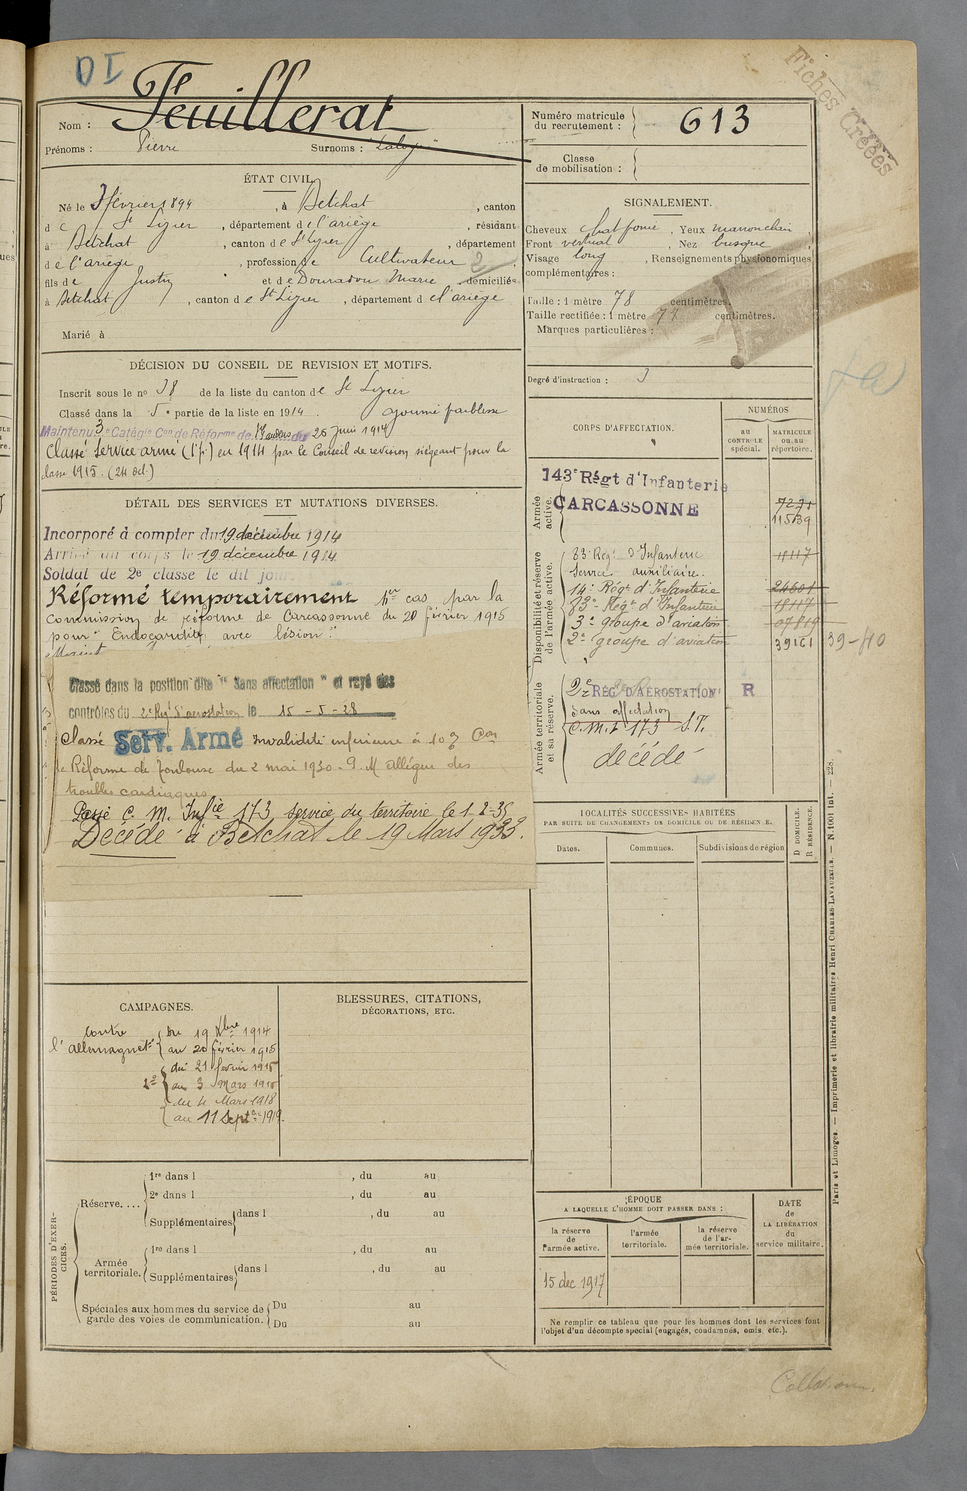 DI
Fiches Créées
Nom : Feuillerat
Prénoms : Pierre Surnoms :
Numéro matricule du recrutement : 613
Classe de mobilisation :
ÉTAT CIVIL.
Né le 3 février 1894, à Betchat, canton
de St Lizier, département de l'ariège, résidant
à Betchat, canton de St Lizier, département
de l'ariège, profession de Cultivateur
fils de Justin et de Douradou Marie domiciliés
à Betchat, canton de St Lizier, département de l'ariège
Marié à
SIGNALEMENT.
Cheveux chat foncé, Yeux marron clair,
Front vertical, Nez busqué
Visage long, Renseignements physionomiques
complémentaires :
Taille : 1 mètre 78 centimètres.
Taille rectifiée : 1 mètre 77 centimètres.
Marques particulières :
Degré d'instruction : 3
DÉCISION DU CONSEIL DE REVISION ET MOTIFS.
Inscrit sous le no 38 de la liste du canton de St Lizier
Classé dans la 5e partie de la liste en 1914. ajourné faiblesse
Maintenu 3e Catégie Con de Réforme de du 25 Juin 1914
Classé Service armé (1e p.) en 1914 par le Conseil de revision siégeant pour la
classe 1915. (24 oct.)
DÉTAIL DES SERVICES ET MUTATIONS DIVERSES.
Incorporé à compter du 19 décembre 1914
Arrivé au corps le 19 décembre 1914
Soldat de 2e classe le dit jour.
Réformé temporairement 1er cas par la
Commission de réforme de Carcassonne du 20 février 1915
pour "Endocardite avec lésion"
Classé dans la position dite "Sans affectation" et rayé des
contrôles du 2e Régt d'aérostation le 15-5-28
Classé Serv. Armé invalidité inférieure à 10% Con
de Réforme de Toulouse du 2 mai 1930. P. M. Allègue des
troubles cardiaques
Passé C. M. Infie 173 service du territoire le 1-2-35
Décédé à Betchat le 19 Mars 1933.
CORPS D'AFFECTATION.
NUMÉROS
au CONTRÔLE spécial.
MATRICULE ou au répertoire.
Armée active.
143e Régt d'Infanterie
CARCASSONNE
7271
11539
Disponibilité et réserve de l'armée active.
83e Régt d'Infanterie 18117
Service auxiliaire.
14e Régt d'Infanterie 24601
83e Régt d'Infanterie 18117
3e groupe d'aviation 07819
2e groupe d'aviation 39161
39-40
Armée territoriale et sa réserve.
2e RÉG. D'AÉROSTATION R
Sans affectation
C. M. I 173 S.T.
décédé
LOCALITÉS SUCCESSIVES HABITÉES
PAR SUITE DE CHANGEMENTS DE DOMICILE OU DE RÉSIDENCE.
Dates. Communes. Subdivisions de région D DOMICILE. R RÉSIDENCE.
CAMPAGNES.
Contre l'allemagne
Du 19 Xbre 1914
au 20 février 1915
du 21 février 1915
au 3 Mars 1918
du 4 Mars 1918
au 11 Septbre 1919.
BLESSURES, CITATIONS,
DÉCORATIONS, ETC.
PÉRIODES D'EXERCICES.
Réserve....
1re dans l , du au
2e dans l , du au
Supplémentaires dans l , du au
Armée territoriale.
1re dans l , du au
Supplémentaires dans l , du au
Spéciales aux hommes du service de garde des voies de communication.
Du au
Du au
ÉPOQUE
A LAQUELLE L'HOMME DOIT PASSER DANS :
la réserve de l'armée active.
l'armée territoriale.
la réserve de l'armée territoriale.
DATE de LA LIBÉRATION du service militaire.
15 dec 1917
Ne remplir ce tableau que pour les hommes dont les services font
l'objet d'un décompte spécial (engagés, condamnés, omis, etc.).
Paris et Limoges. — Imprimerie et librairie militaires Henri CHARLES-LAVAUZELLE. — N. 1001 Int. — 228.